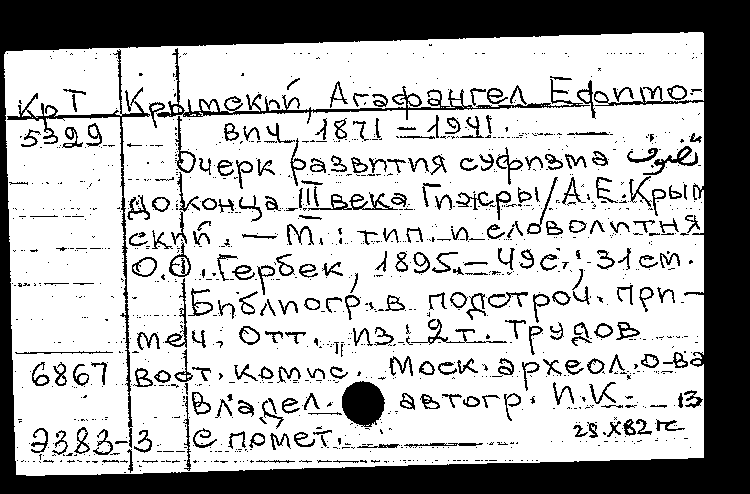 Кр Т Крымский, Агафангел Ефимо-
5399 вич, 1871 – 1941.
Очерк развития суфизма تصوف
до конца III века Гижры / А.Е. Крым
ский. — М. : тип. и словолитня
О.О. Гербек, 1895. — 49с.; 31см.
Библиогр. в подстроч. при-
меч. Отт. из: 2 т. Трудов
6867 вост. комис. Моск. археол. о-ва
Владел. автогр. И.К. 13
Э383-3 с помет. 29.X82 гс